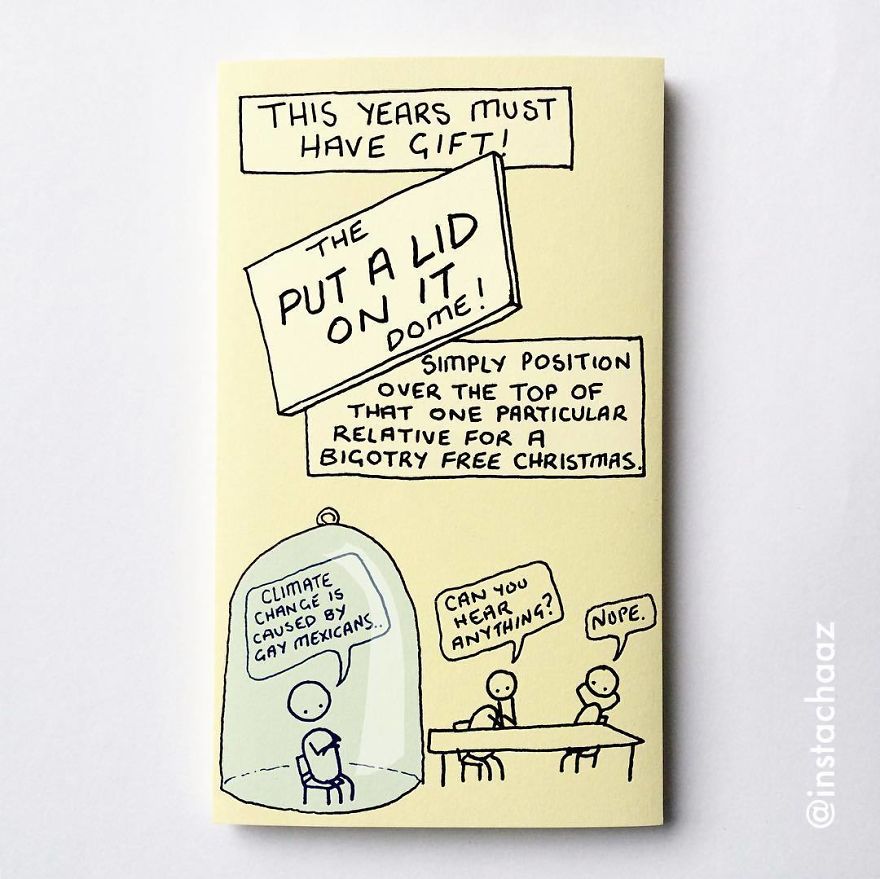 THIS YEARS MUST
HAVE GIFT!
THE
PUT A LID
ON IT
DOME!
SIMPLY POSITION
OVER THE TOP OF
THAT ONE PARTICULAR
RELATIVE FOR A
BIGOTRY FREE CHRISTMAS.
CLIMATE
CHANGE IS
CAUSED BY
GAY MEXICANS..
CAN YOU
HEAR
ANYTHING?
NOPE.
@instachaaz